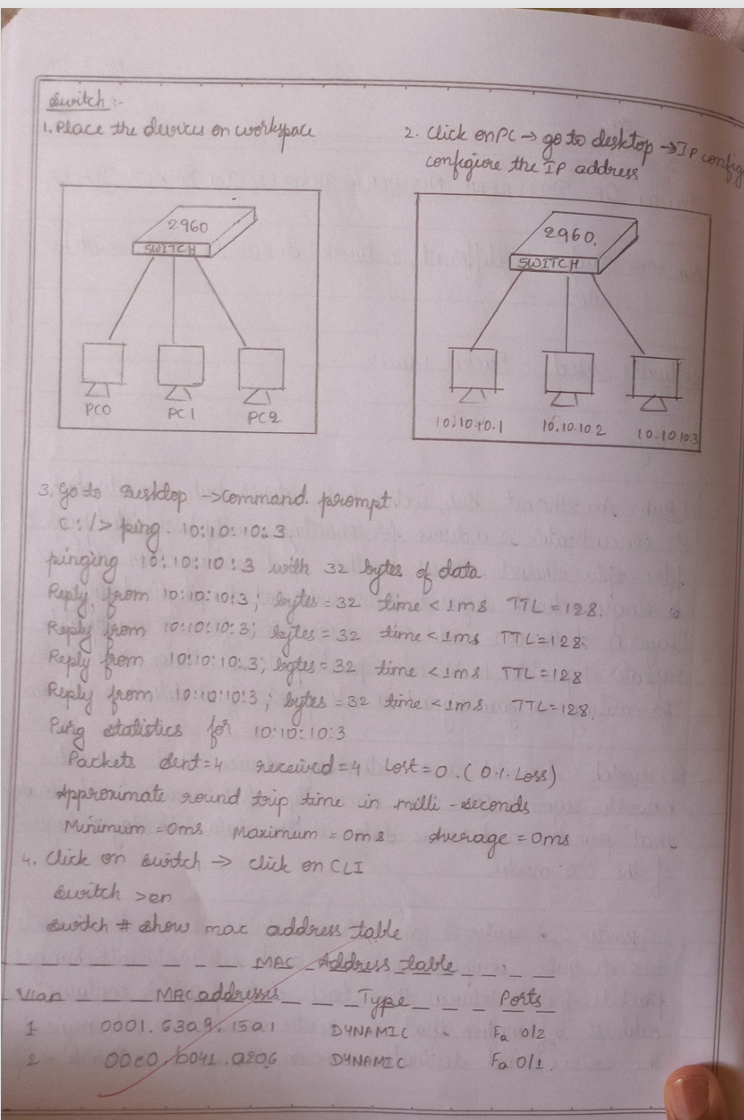 Switch :-
1. Place the devices on workspace
2. Click on PC → go to desktop → IP config
configure the IP address
2960
SWITCH
PC0 PC1 PC2
2960.
SWITCH
10.10.10.1 10.10.10.2 10.10.10.3
3. Go to Desktop → Command prompt
C:/> ping 10:10:10:3
pinging 10:10:10:3 with 32 bytes of data
Reply from 10:10:10:3; bytes = 32 time < 1ms TTL = 128.
Reply from 10:10:10:3; bytes = 32 time < 1ms TTL = 128.
Reply from 10:10:10:3; bytes = 32 time < 1ms TTL = 128
Reply from 10:10:10:3; bytes = 32 time < 1ms TTL = 128.
Ping statistics for 10:10:10:3
Packets sent = 4 received = 4 Lost = 0. (0% Loss)
Approximate round trip time in milli-seconds
Minimum = 0ms Maximum = 0ms Average = 0ms
4. Click on switch → click on CLI
switch >en
switch # show mac address table
MAC Address table
Vlan MAC addresses Type Ports
1 0001.63a9.15a1 DYNAMIC Fa 0/2
2 DYNAMIC Fa 0/1.